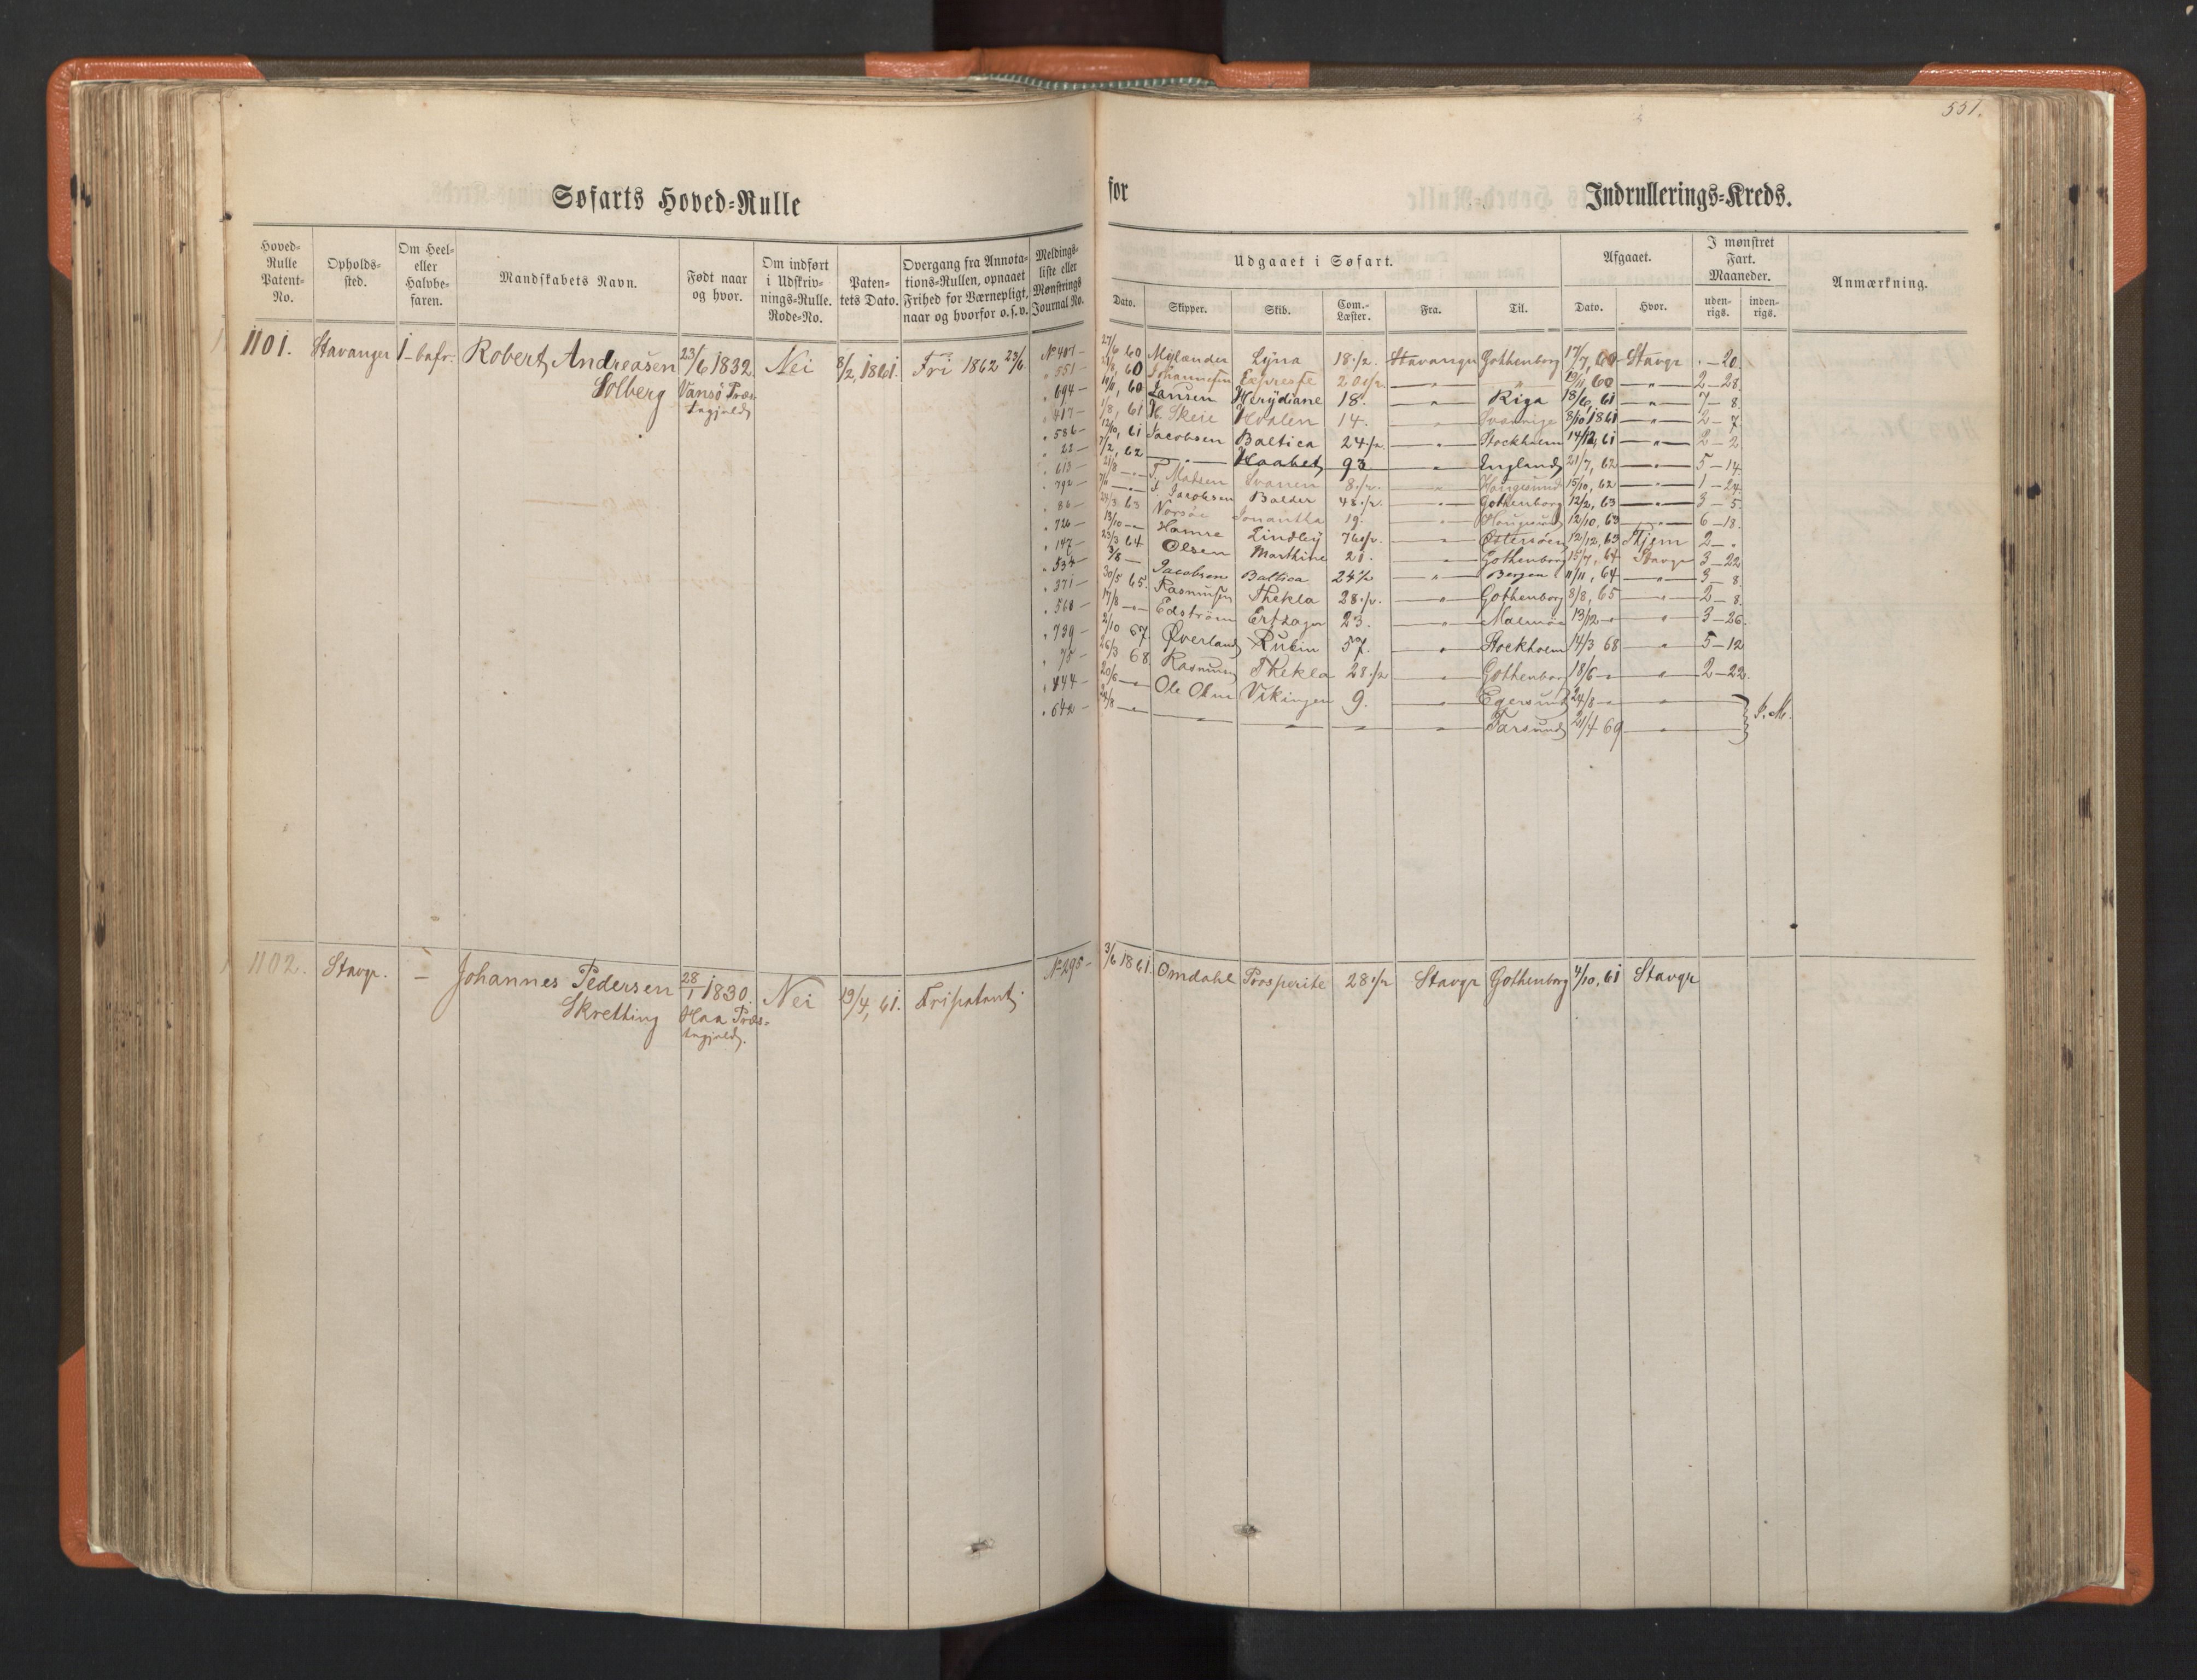 551.
Søfarts Hoved-Rulle
for
Indrullerings-Kreds.
Hoved-Rulle Patent-No.
Opholds-sted.
Om Heel- eller Halvbe-faren.
Mandskabets Navn.
Født naar og hvor.
Om indført i Udskriv-nings-Rulle. Rode-No.
Paten-tets Dato.
Overgang fra Annota-tions-Rullen, opnaaet Frihed for Værnepligt, naar og hvorfor o.s.v.
Meldings-liste eller Mønstrings Journal No.
Udgaaet i Søfart.
Dato.
Skipper.
Skib.
Com.-Læster.
Fra.
Til.
Afgaaet.
Dato.
Hvor.
I mønstret Fart. Maaneder.
uden-rigs.
inden-rigs.
Anmærkning.
1101. Stavanger 1-bafr. Robert Andreasen 23/6 1832. Nei 8/2, 1861. Fri 1862 23/6
Solberg Vansø Præs-
tegjeld
No 401 — 27/6 60 Mylænder Lyna 18 1/2. Stavanger Gothenborg 17/7, 60 Stavgr . — 20.
" 551 — 21/8, 60 Johannesen Expresse 20 1/2 — " — " 19/11, 60 — " — 2 — 28.
" 694 — 60 Jansen Herydiane 18. — " — Riga 18/6, 61 — " — 7 — 8.
" 417 — 1/8, 61 H. Skeie Hvalen 14. — " — 8/10 1861 — " — 2 — 7.
" 586 — 12/10, 61 Jacobsen Baltica 24 1/2 — " — Stockholm 14/12, 61 — " — 2 — 2
" 22 — 7/2, 62 — " — Haabet 93 — " — England 21/7, 62 — " — 5 — 14.
" 613 — 21/8 — " — T. Matsen Svanen 8 1/2. — " — Haugesund 15/10, 62 — " — 1 — 24.
" 792 — — " — Jacobsen Balder 48 1/2. — " — Gothenborg 12/2, 63 — " — 3 — 5.
" 86 — 24/3 63 Norsöe Jonantha 19. — " — Haugesund 12/10, 63 — " — 6 — 18.
" 726 — 13/10 — " — Hamre Lindley 76 1/2. — " — Østersøen 12/12, 63 Hjem 2 — "
" 147 — 23/3 64 Olsen Marthine 21. — " — Gothenborg 15/7, 64 Stavgr 3 — 22
" 534 — 3/8 — Jacobsen Baltica 24 1/2 — " — Bergen 11/11, 64 — " — 3 — 8.
" 371 — 30/5 65. Rasmussen Thekla 28 1/2. — " — Gothenborg 8/8, 65 — " — 2 — 8.
" 568 — 17/8 — " — Edström 23. — " — Malmøe 13/12 — " — 3 — 26.
" 739 — 2/10 67. Øverland Rubin 57. — " — Stockholm 14/3 68 — " — 5 — 12
" 75 — 26/3 68 Rasmus Thekla 28 1/2 — " — Gothenborg 18/6 — " — 2 — 22.
" 444 — 20/6 — " — Ole Olsen Vikingen 9. — " — Egersund 24/8 — " —
" 642 — 24/8 — " — — " — — " — — " — — " — Farsund 21/4 69 — " — } I. M.
1102. Stavgr. — Johannes Pedersen 28/1 1830. Nei 19/4, 61. Fripatent. No 295 — 3/6 1861. Omdahl Prosperite 28 1/2 Stavgr Gothenborg 4/10, 61 Stavgr
Skretting Haa Præs-
tegjeld.